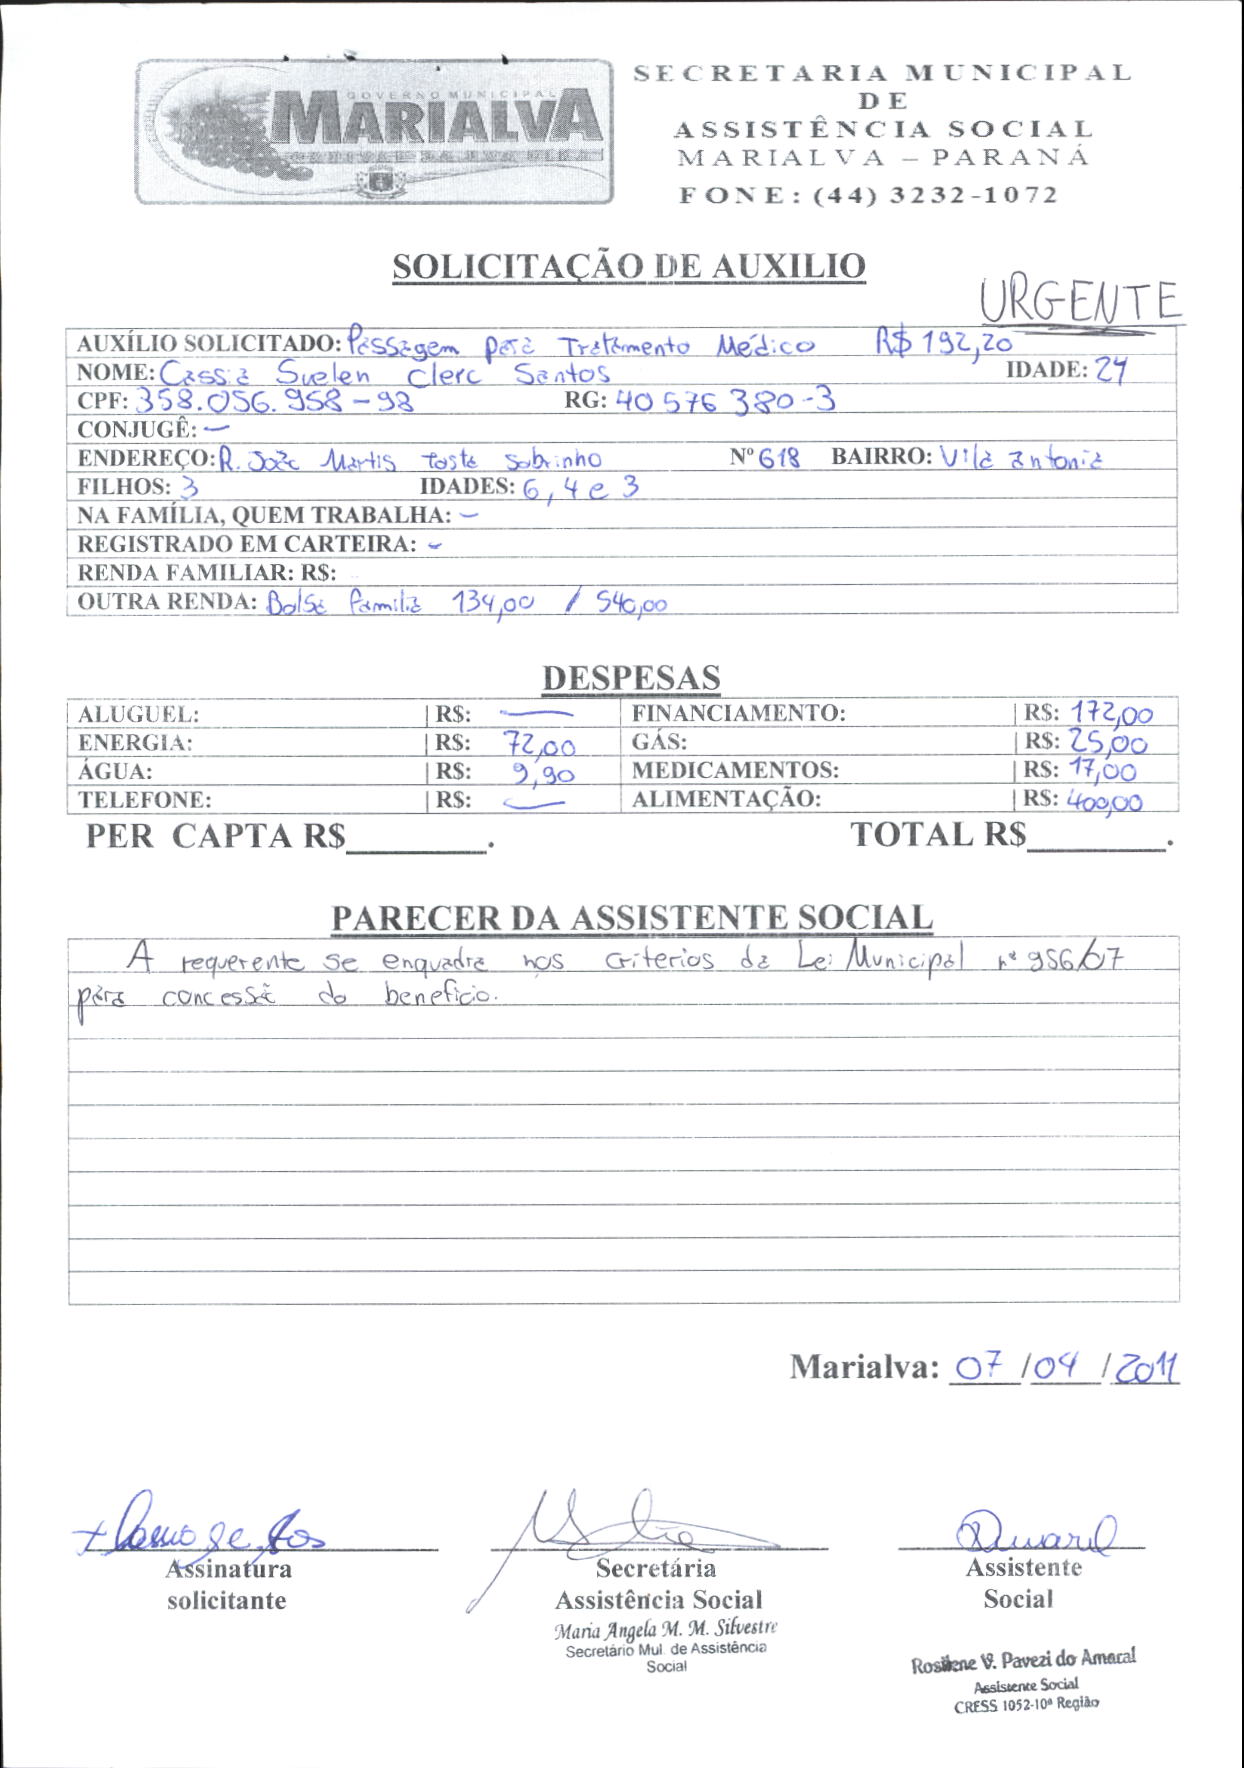 GOVERNO MUNICIPAL
MARIALVA
SECRETARIA MUNICIPAL
DE
ASSISTÊNCIA SOCIAL
MARIALVA – PARANÁ
FONE: (44) 3232-1072
SOLICITAÇÃO DE AUXILIO
URGENTE
AUXÍLIO SOLICITADO: Passagem para Tratamento Médico R$ 192,20
NOME: Cassia Suelen Clerc Santos IDADE: 24
CPF: 358.056.958-98 RG: 40 576 380-3
CONJUGÊ: –
ENDEREÇO: R. João Martis Tosta Sobrinho Nº 618 BAIRRO: Vila Antonia
FILHOS: 3 IDADES: 6, 4 e 3
NA FAMÍLIA, QUEM TRABALHA: –
REGISTRADO EM CARTEIRA: –
RENDA FAMILIAR: R$:
OUTRA RENDA: Bolsa Familia 134,00 / 540,00
DESPESAS
ALUGUEL: R$: — FINANCIAMENTO: R$: 172,00
ENERGIA: R$: 72,00 GÁS: R$: 25,00
ÁGUA: R$: 9,90 MEDICAMENTOS: R$: 17,00
TELEFONE: R$: — ALIMENTAÇÃO: R$: 400,00
PER CAPTA R$________. TOTAL R$________.
PARECER DA ASSISTENTE SOCIAL
A requerente se enquadra nos criterios da Lei Municipal nº 956/07
para concessã do beneficio.
Marialva: 07 /04 /2011
Assinatura Secretária Assistente
solicitante Assistência Social Social
Maria Angela M. M. Silvestre
Secretário Mul. de Assistência
Social
Rosilene V. Pavezi do Amaral
Assistente Social
CRESS 1052-10ª Região